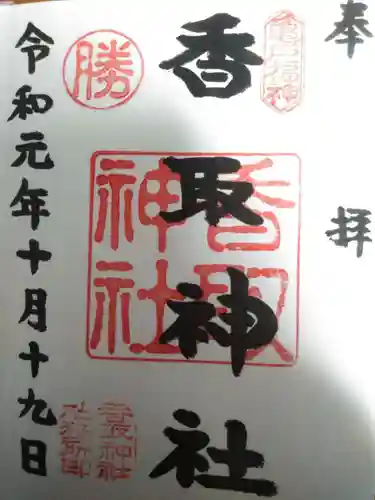 奉拝
亀戸
香取神社
香取神社
勝
令和元年十月十九日
香取神社
社務所印